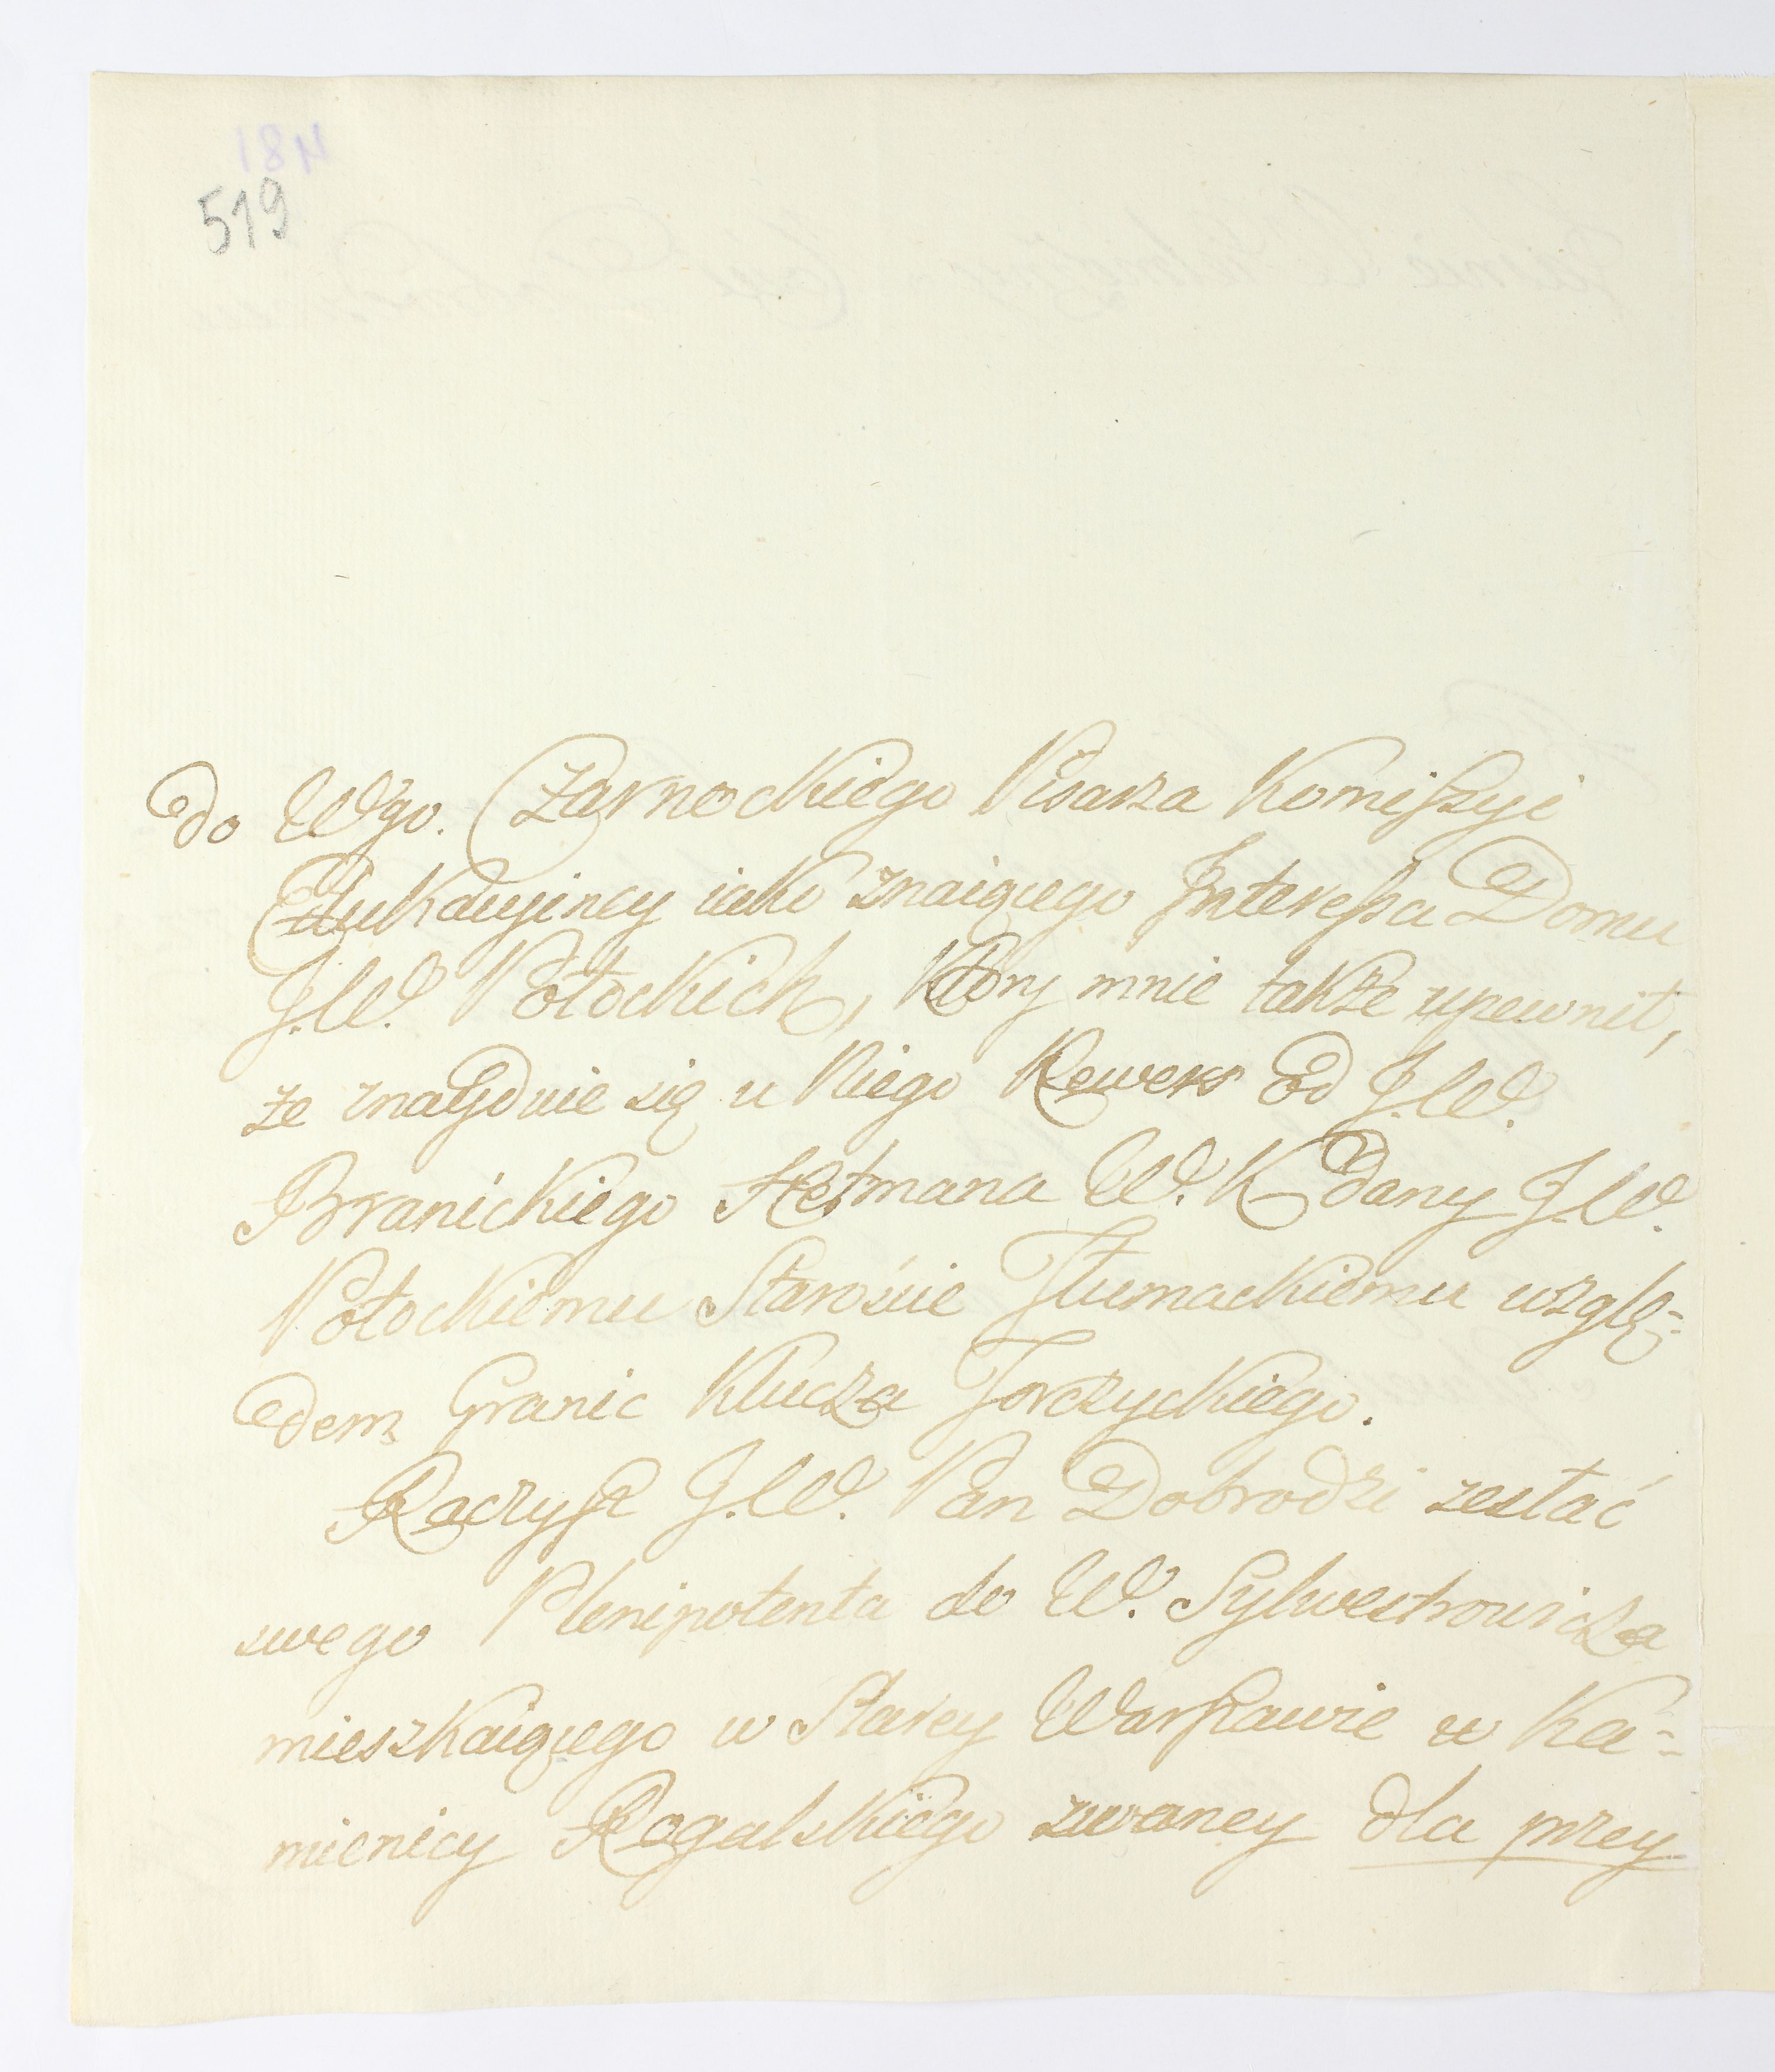 519
do Wgo. Czarnockiego Pisarza Komiſzyi
Edukacyiney iako znaiącego Intereſsa Domu
J.W. Potockich, Ktory mnie także upewnił,
że znayduie się u Niego Rewers od J.W.
Branickiego Hetmana W. K dany J.W.
Potockiemu Staroście Tłumackiemu wzglę=
dem Granic Klucza Torczyckiego.
Raczyſz J.W. Pan Dobrodzi zesłać
swego Plenipotenta do W. Sylwestrowicza
mieszkaiącego w Starey Warſzawie w Ka=
mienicy Rogalskiego zwaney dla przey